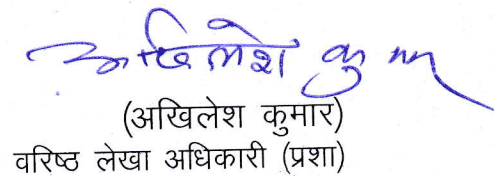 अखिलेश कुमार
(अखिलेश कुमार)
वरिष्ठ लेखा अधिकारी (प्रशा)